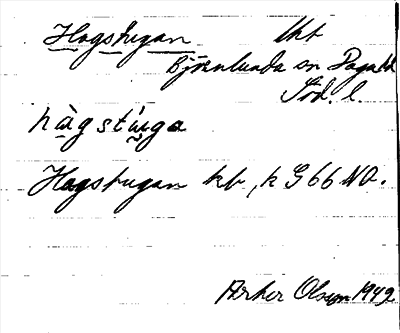 Hagstugan lht
Björnlunda sn Daga hd
Söd. l.
hàgstúga
Hagstugan kb, k G 66 NO.
Olsson 1942